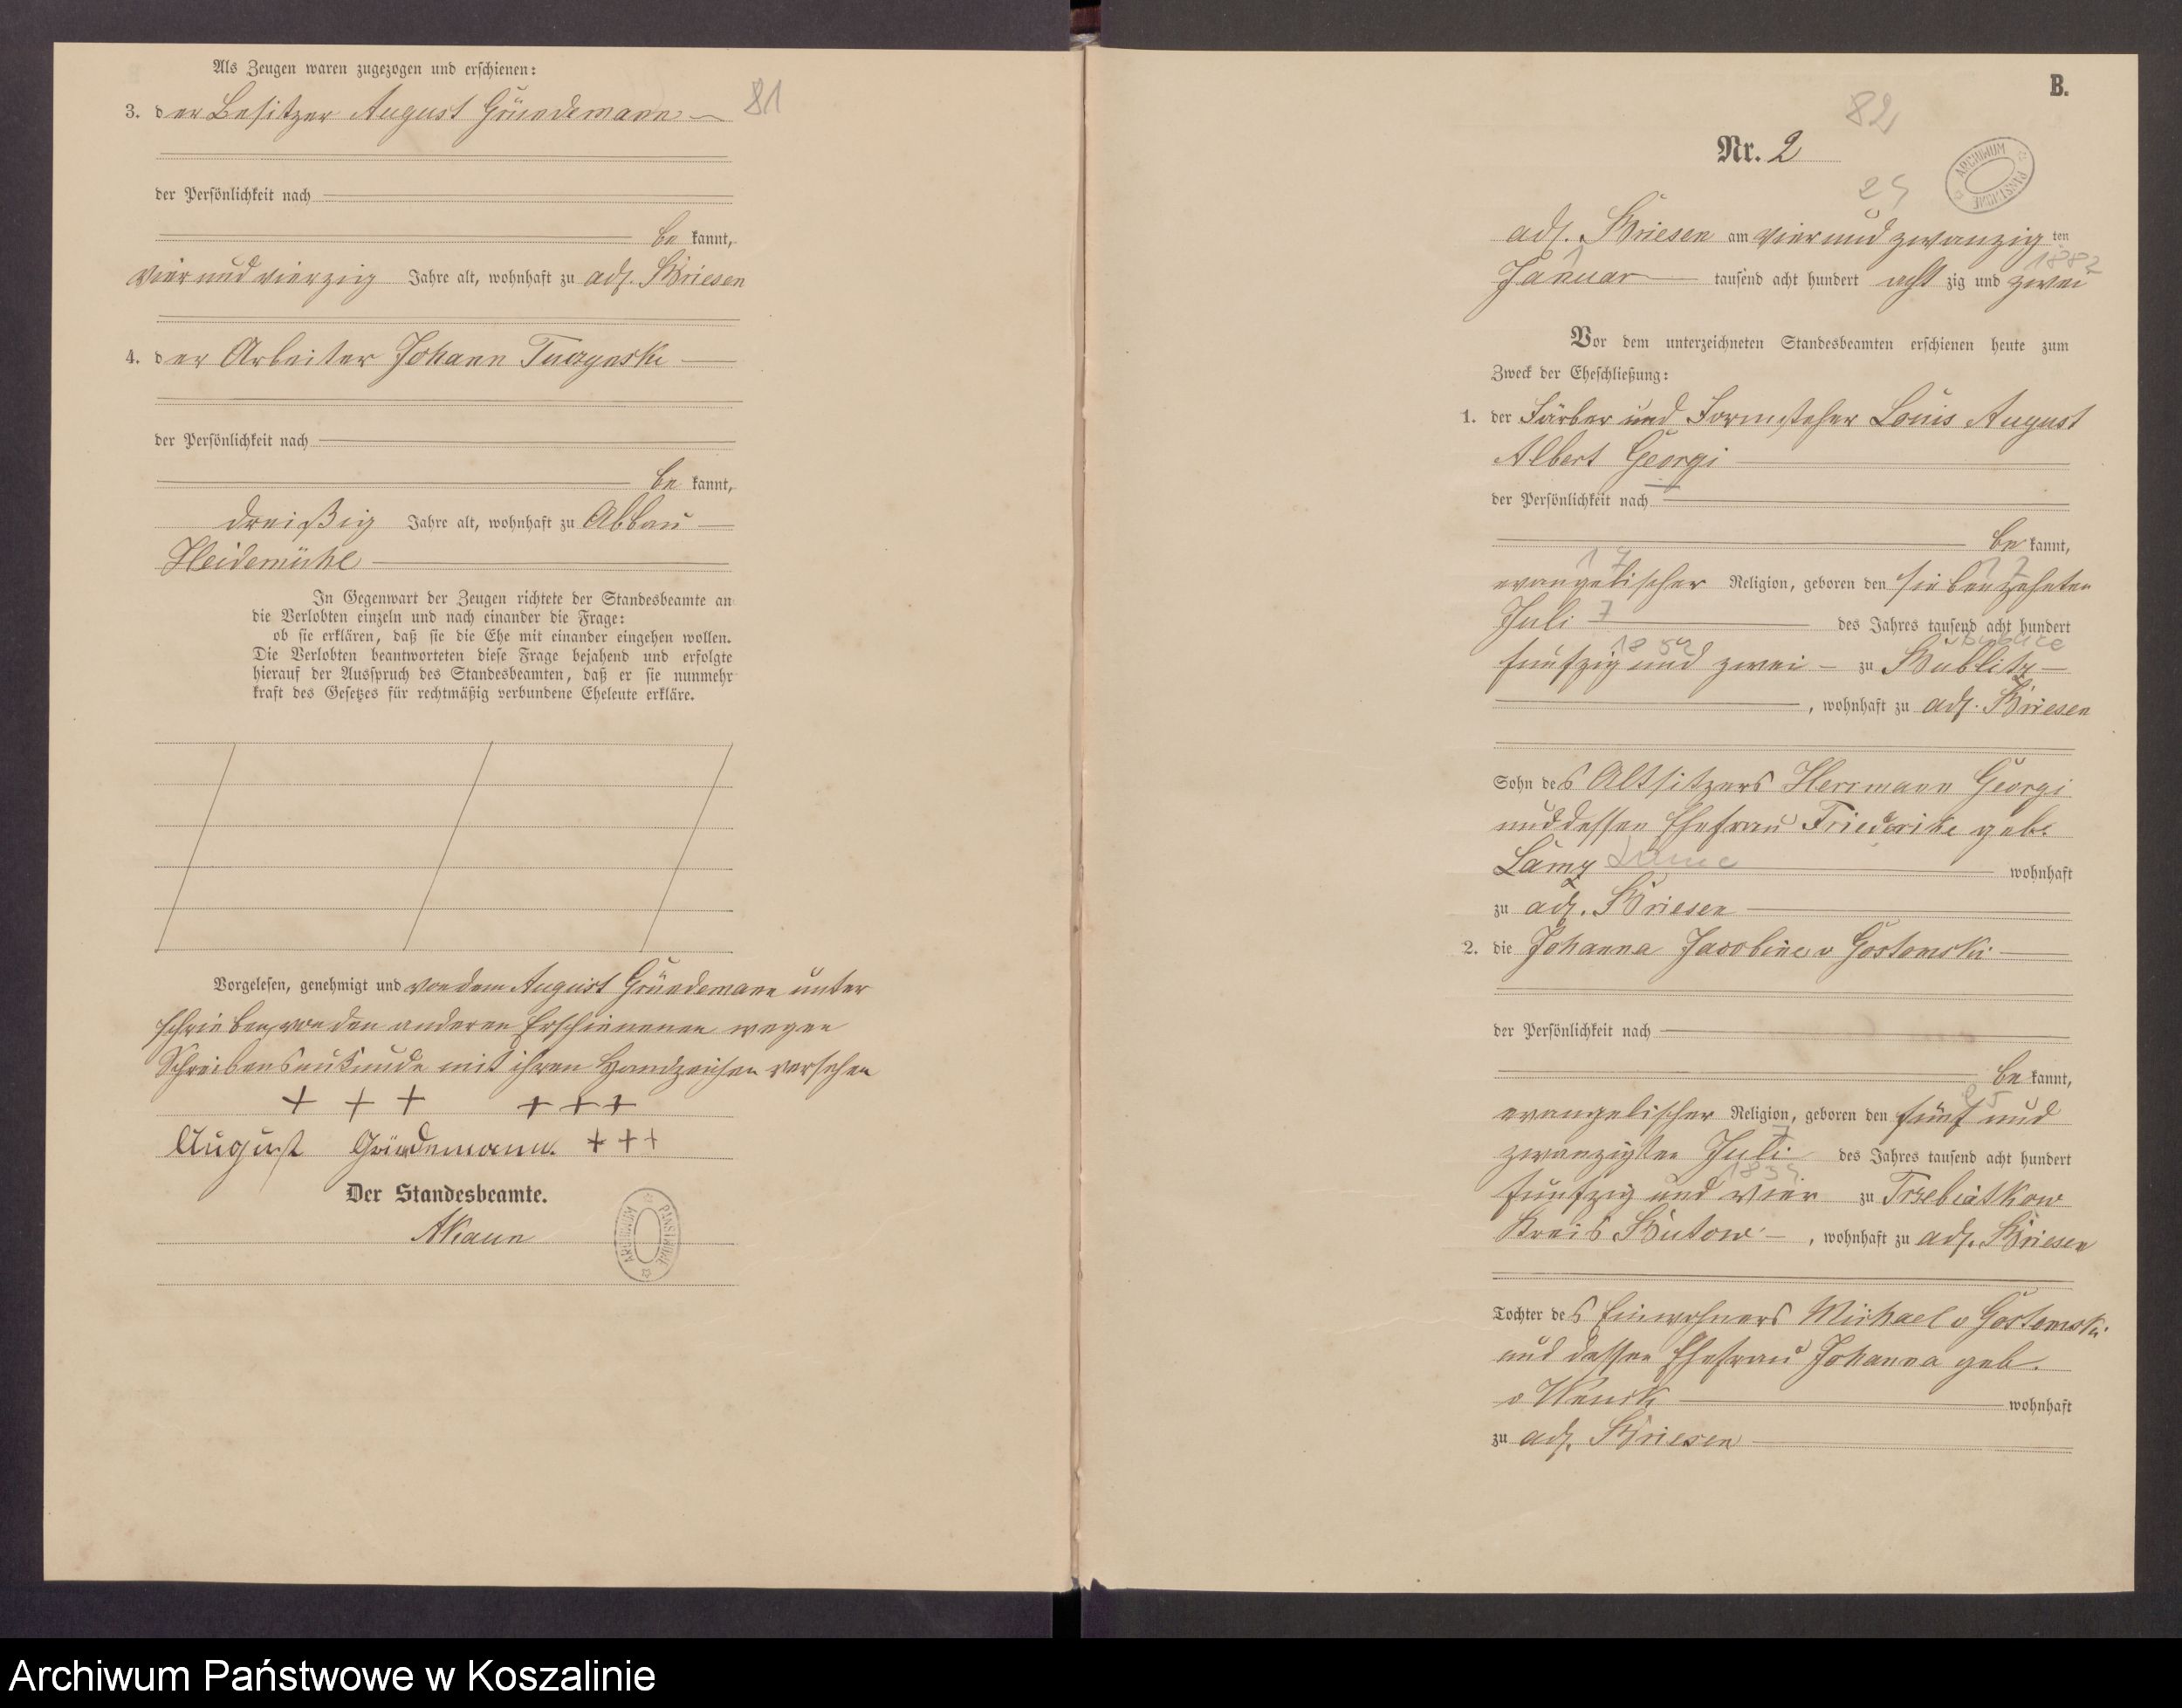 Als Zeugen waren zugezogen und erschienen:
81
3. der Besitzer August Gründemann
der Persönlichkeit nach
be kannt,
vier und vierzig Jahre alt, wohnhaft zu adl. Briesen
4. der Arbeiter Johann Turzynski
der Persönlichkeit nach
be kannt,
dreißig Jahre alt, wohnhaft zu Abbau
Heidemühl
In Gegenwart der Zeugen richtete der Standesbeamte an
die Verlobten einzeln und nach einander die Frage:
ob sie erklären, daß sie die Ehe mit einander eingehen wollen.
Die Verlobten beantworteten diese Frage bejahend und erfolgte
hierauf der Ausspruch des Standesbeamten, daß er sie nunmehr
kraft des Gesetzes für rechtmäßig verbundene Eheleute erkläre.
Vorgelesen, genehmigt und von dem August Gründemann unter
schrieben, von den anderen Erschienenen wegen
Schreibensunkunde mit ihren Handzeichen versehen
+ + + + + +
August Gründemann. + + +
Der Standesbeamte.
ARCHIWUM PAŃSTWOWE
B.
82
Nr. 2
ARCHIWUM PAŃSTWOWE
24
adl. Briesen am vier und zwanzig ten
1 1882
Januar tausend acht hundert acht zig und zwei
Vor dem unterzeichneten Standesbeamten erschienen heute zum
Zweck der Eheschließung:
1. der Färber und Formstecher Louis August
Albert Georgi
der Persönlichkeit nach
be kannt,
17 17
evangelischer Religion, geboren den siebenzehnten
Juli 7 des Jahres tausend acht hundert
1852 Bobolice
fünfzig und zwei zu Bublitz
, wohnhaft zu adl. Briesen
Sohn des Altsitzers Herrmann Georgi
und dessen Ehefrau Friederike geb.
Lamz wohnhaft
zu adl. Briesen
2. die Johanna Jacobine v Gostomski
der Persönlichkeit nach
be kannt,
25
evangelischer Religion, geboren den fünf und
zwanzigsten Juli 7 des Jahres tausend acht hundert
fünfzig und vier zu Trzebiatkow
Kreis Butow , wohnhaft zu adl. Briesen
Tochter des Einwohners Michael v Gostomski
und dessen Ehefrau Johanna geb.
v wohnhaft
zu adl. Briesen
Archiwum Państwowe w Koszalinie